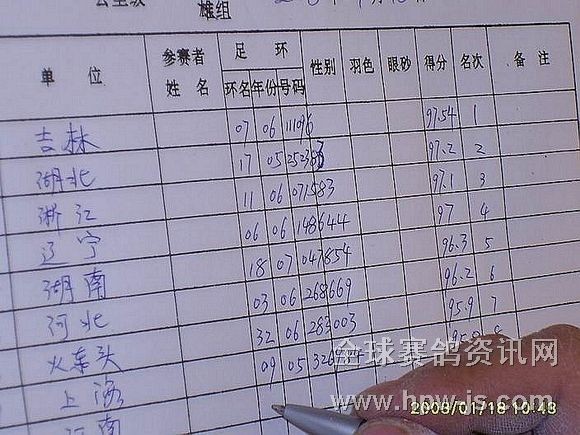 雄组
单 位 参赛者姓名 足 环 环名 年份 号码 性别 羽色 眼砂 得分 名次 备 注
吉林 07 06 111096 97.54 1
湖北 17 05 97.2 2
浙江 11 06 071583 97.1 3
辽宁 06 06 148644 97 4
湖南 18 07 047854 96.3 5
河北 03 06 268669 96.2 6
火车头 32 06 283003 95.9 7
上海 09 05
全球赛鸽资讯网
www.hpwjs.com
2008/01/18 10:43